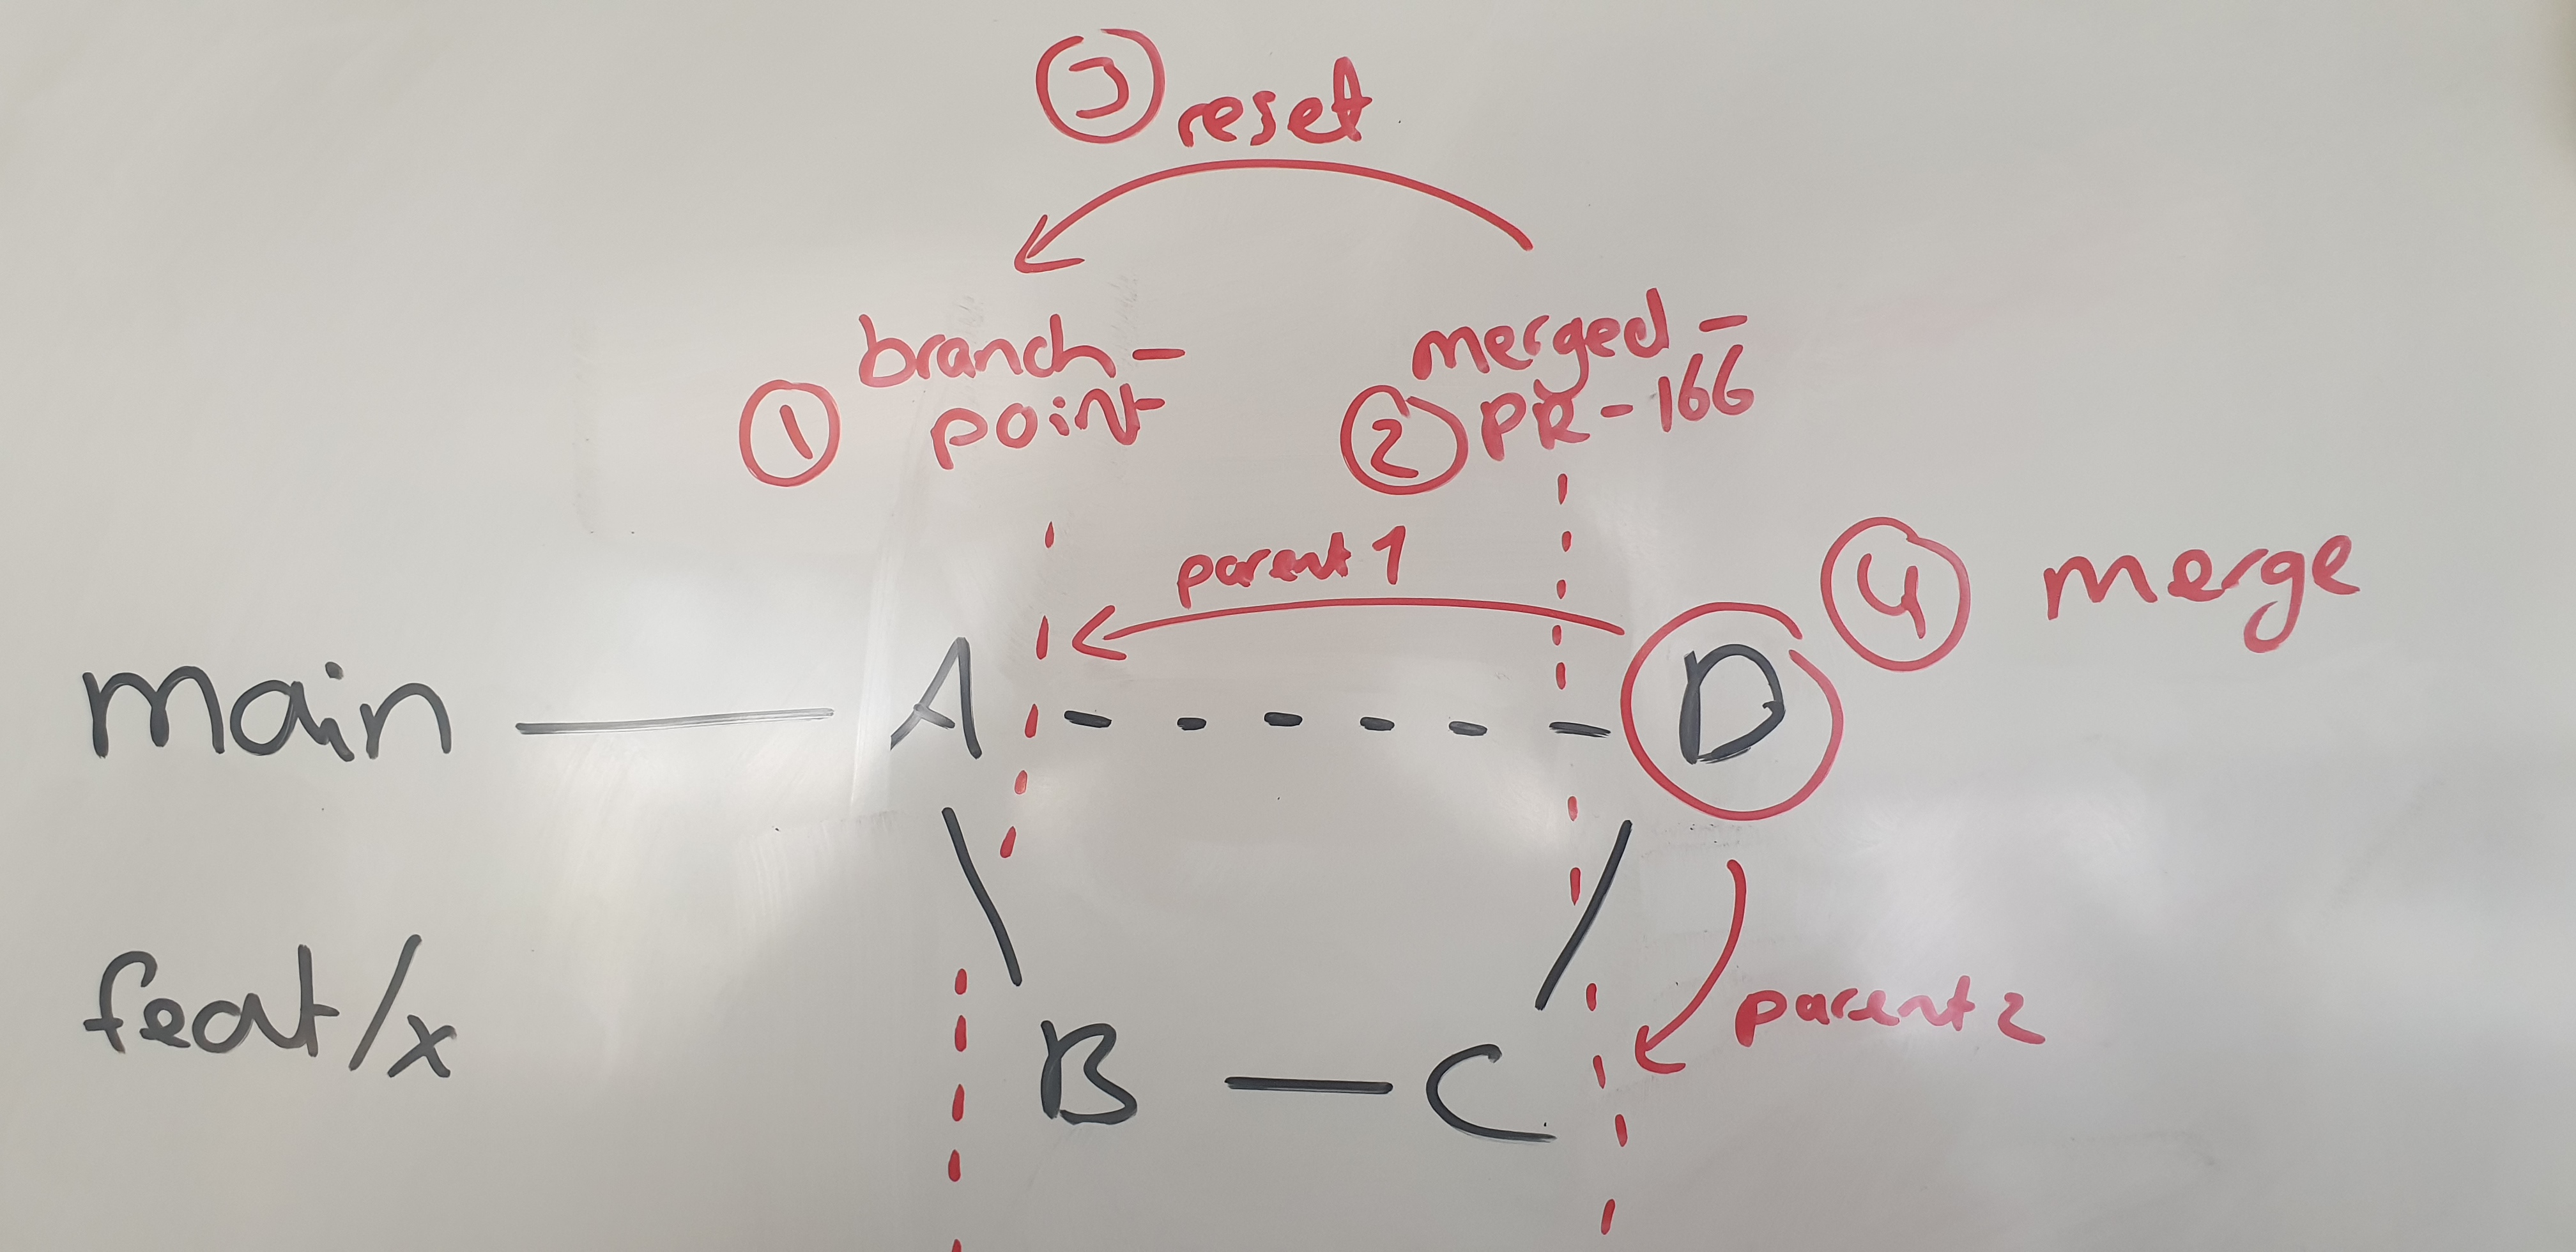 3 reset
branch-
1 point
merged-
2 PR-166
parent 1
4 merge
main A D
feat/x B C
parent 2